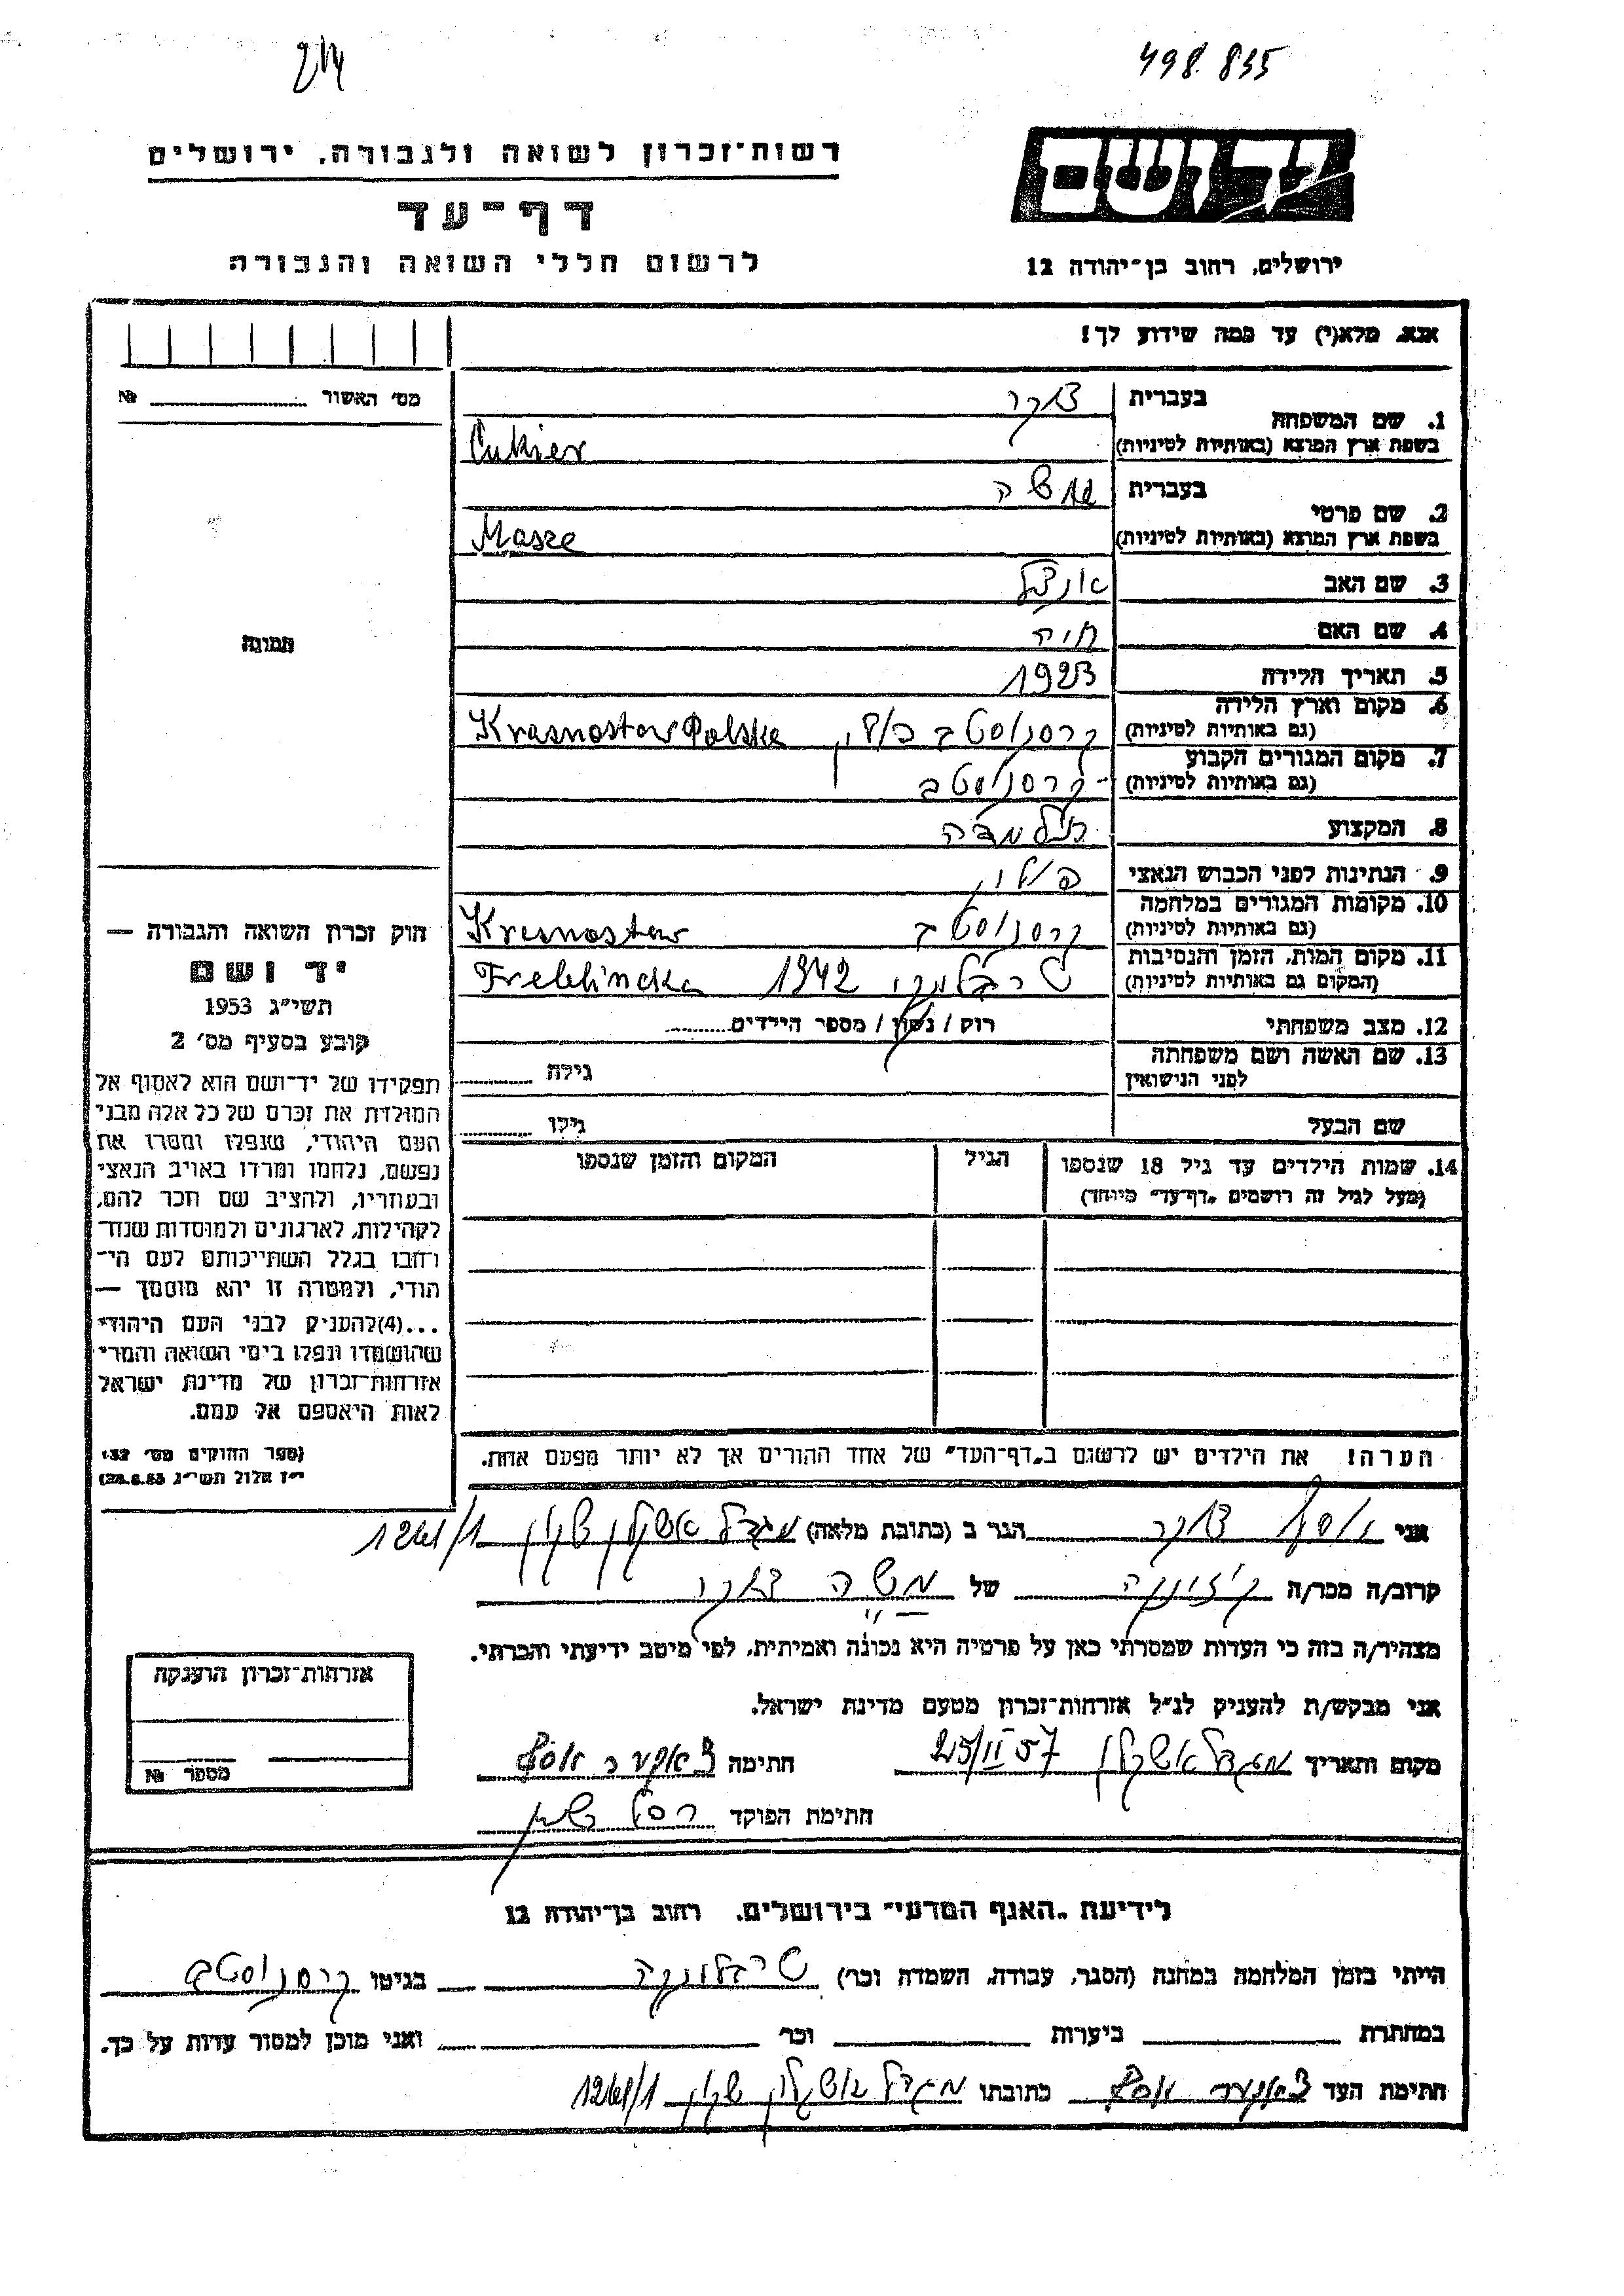 498.835
214
יד ושם
רשות־זכרון לשואה ולגבורה, ירושלים
דף־עד
לרשום חללי השואה והגבורה
ירושלים, רחוב בן־יהודה 12
אנא, מלא(י) עד כמה שידוע לך!
מס׳ האשור № ............
1. שם המשפחה
בעברית צוקר
בשפת ארץ המוצא (באותיות לטיניות) Cukier
2. שם פרטי
בעברית משה
בשפת ארץ המוצא (באותיות לטיניות) Masze
3. שם האב אנצל
4. שם האם חיה
5. תאריך הלידה 1923
6. מקום וארץ הלידה
(גם באותיות לטיניות) קרסנוסטב פולין Krasnostaw Polska
7. מקום המגורים הקבוע
(גם באותיות לטיניות) קרסנוסטב
8. המקצוע
9. הנתינות לפני הכבוש הנאצי פולין
10. מקומות המגורים במלחמה
(גם באותיות לטיניות) קרסנוסטב Kresnostaw
11. מקום המות, הזמן והנסיבות
(המקום גם באותיות לטיניות) 1942 Treblincka
12. מצב משפחתי רווק / נשוי / מספר הילדים.........
13. שם האשה ושם משפחתה
לפני הנישואין גילה ..........
שם הבעל גילו ..........
14. שמות הילדים עד גיל 18 שנספו הגיל המקום והזמן שנספו
(מעל לגיל זה רושמים „דף־עד” מיוחד)
הערה! את הילדים יש לרשום ב„דף־העד” של אחד ההורים אך לא יותר מפעם אחת.
תמונה
חוק זכרון השואה והגבורה —
יד ושם
תשי״ג 1953
קובע בסעיף מס׳ 2
תפקידו של יד־ושם הוא לאסוף אל
המולדת את זכרם של כל אלה מבני
העם היהודי, שנפלו ומסרו את
נפשם, נלחמו ומרדו באויב הנאצי
ובעוזריו, ולהציב שם וזכר להם,
לקהילות, לארגונים ולמוסדות שנח־
רבו בגלל השתייכותם לעם הי־
הודי, ולמטרה זו יהא מוסמך —
...(4)להעניק לבני העם היהודי
שהושמדו ונפלו בימי השואה והמרי
אזרחות־זכרון של מדינת ישראל
לאות היאספם אל עמם.
(ספר החוקים מס׳ 132
י״ז אלול תשי״ג 28.8.53)
אני יוסף צוקר הגר ב (כתובת מלאה) מגדל אשקלון שכון 1241/1
קרוב/ה מכר/ה של משה צוקר
מצהיר/ה בזה כי העדות שמסרתי כאן על פרטיה היא נכונה ואמיתית, לפי מיטב ידיעתי והכרתי.
אני מבקש/ת להעניק לנ״ל אזרחות־זכרון מטעם מדינת ישראל.
מקום ותאריך מגדל אשקלון 25/II 57 חתימה צוקער יוסף
חתימת הפוקד
אזרחות־זכרון הוענקה
מספר №
לידיעת „האגף המדעי” בירושלים, רחוב בן־יהודה 12
הייתי בזמן המלחמה במחנה (הסגר, עבודה, השמדה וכו׳) טרבלינקה בגיטו קרסנוסטב
במחתרת ביערות וכו׳ ואני מוכן למסור עדות על כך.
חתימת העד צוקער יוסף כתובתו מגדל אשקלון שכון 1241/1